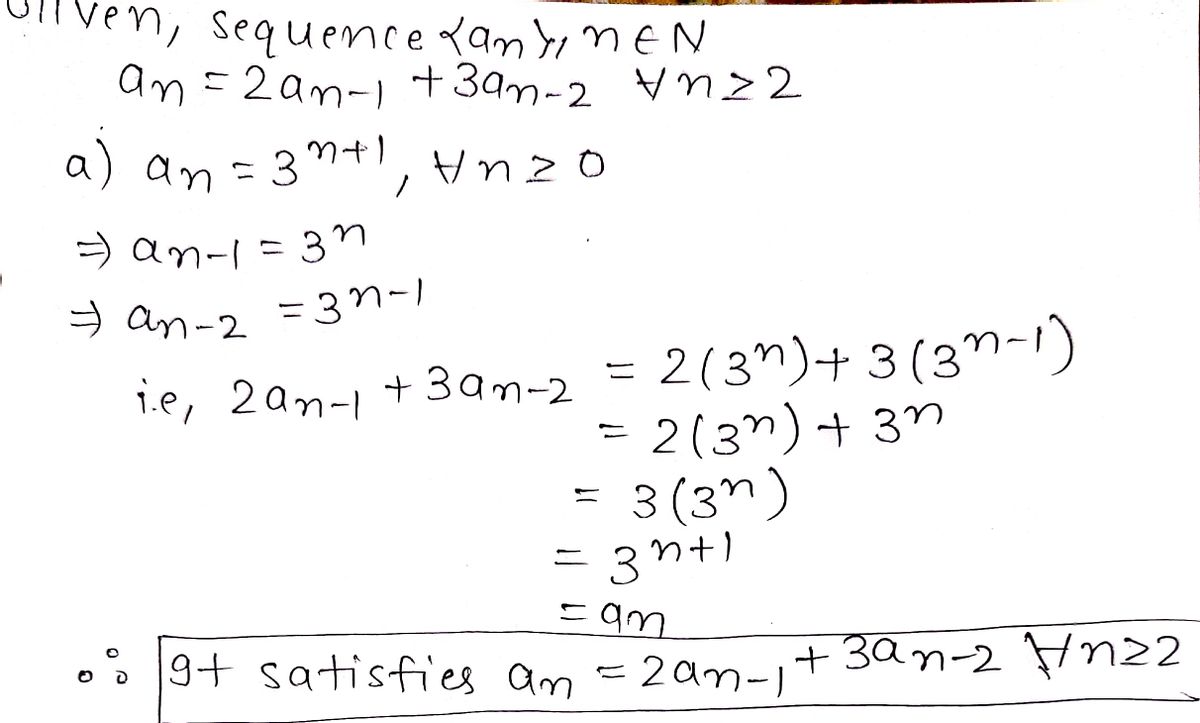 Given, sequence {an}, n ∈ N
an = 2an-1 + 3an-2 ∀n≥2
a) an = 3^n+1, ∀n≥0
⇒ an-1 = 3^n
⇒ an-2 = 3^n-1
i.e, 2an-1 + 3an-2 = 2(3^n) + 3(3^n-1)
= 2(3^n) + 3^n
= 3(3^n)
= 3^n+1
= an
∴ It satisfies an = 2an-1 + 3an-2 ∀n≥2